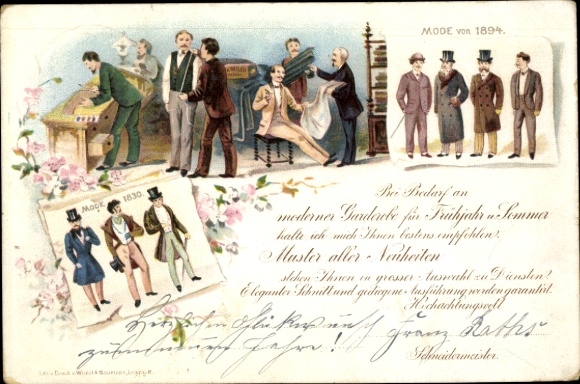 MODE von 1894.
MODE 1830.
Bei Bedarf an
moderner Garderobe für Frühjahr u. Sommer
halte ich mich Ihnen bestens empfohlen!
Muster aller Neuheiten
stehen Ihnen in grosser Auswahl zu Diensten!
Eleganter Schnitt und gediegene Ausführung werden garantirt.
Hochachtungsvoll
Herzlichen Glückwunsch Franz
zum neuen Jahre!
Schneidermeister.
Lith. u. Druck v. Wezel & Naumann, Leipzig-R.